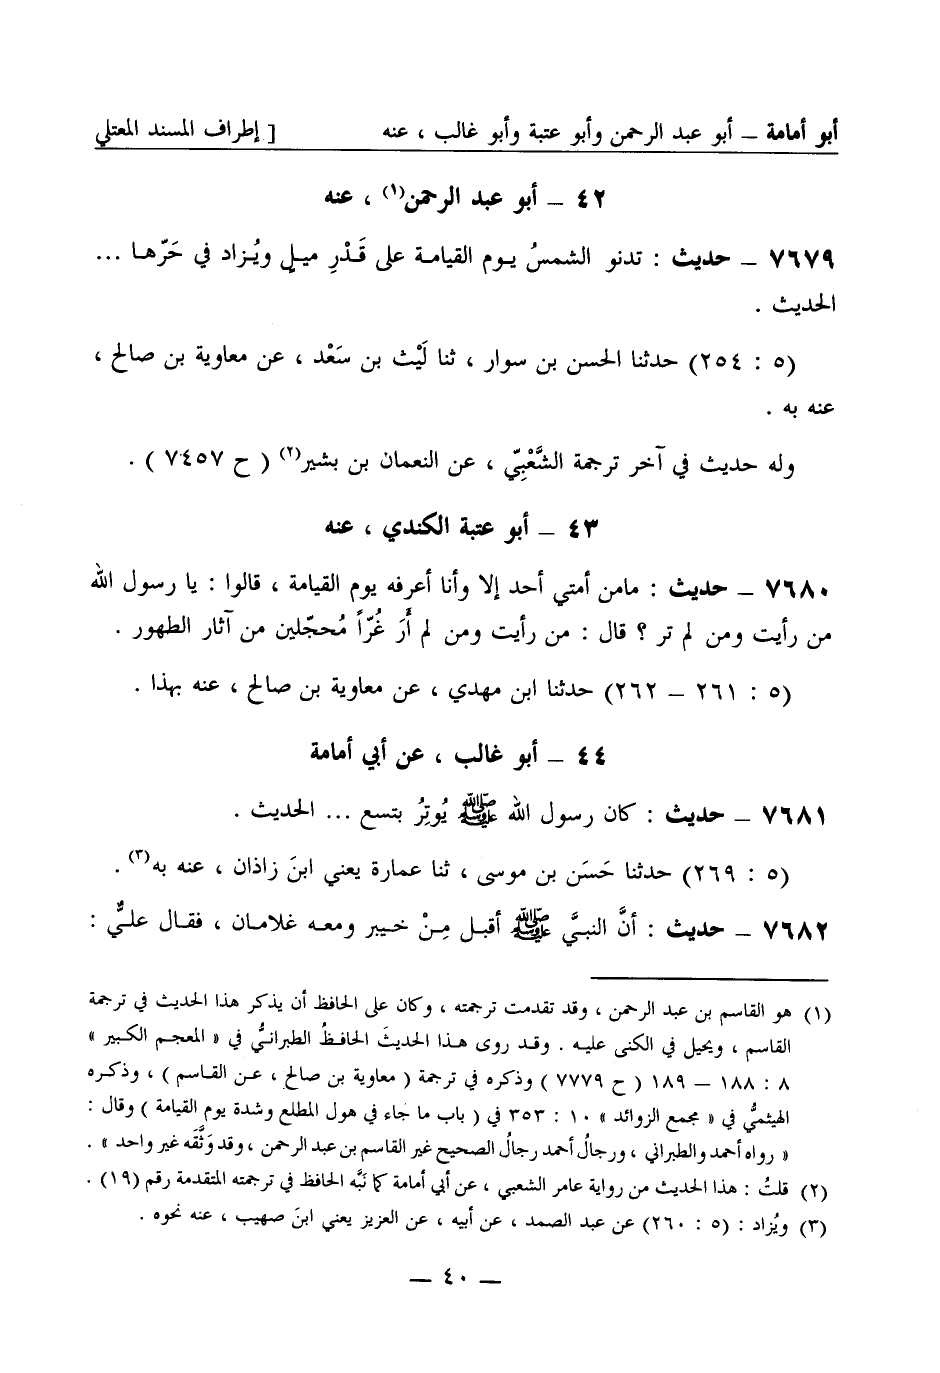 أبو أمامة – أبو عبد الرحمن وأبو عتبة وأبو غالب ، عنه [ إطراف المسند المعتلي
٤٢ – أبو عبد الرحمن(١) ، عنه
٧٦٧٩ – حديث : تدنو الشمسُ يـوم القيامـة على قَـدْرِ ميـلٍ ويُـزاد في حَرّهـا ...
الحديث .
(٥ : ٢٥٤) حدثنا الحسن بن سوار ، ثنا لَيْث بن سَعْد ، عن معاوية بن صالح ،
عنه به .
وله حديث في آخر ترجمة الشَّعْبِيّ ، عن النعمان بن بشير(٢) ( ح ٧٤٥٧ ) .
٤٣ – أبو عتبة الكندي ، عنه
٧٦٨٠ – حديث : مامن أمتي أحد إلا وأنا أعرفه يوم القيامة ، قالوا : يا رسول الله
من رأيت ومن لم تر ؟ قال : من رأيت ومن لم أَرَ غُرّاً مُحجّلين من آثار الطهور .
(٥ : ٢٦١ – ٢٦٢) حدثنا ابن مهدي ، عن معاوية بن صالح ، عنه بهذا .
٤٤ – أبو غالب ، عن أبي أمامة
٧٦٨١ – حديث : كان رسول الله ﷺ يُوتِرُ بتسع ... الحديث .
(٥ : ٢٦٩) حدثنا حَسَن بن موسى ، ثنا عمارة يعني ابنَ زاذان ، عنه به(٣) .
٧٦٨٢ – حديث : أنَّ النبيَّ ﷺ أقبـل مِـنْ خيبر ومعـه غلامـان ، فقـال علـيٌّ :
(١) هو القاسم بن عبد الرحمن ، وقد تقدمت ترجمته ، وكان على الحافظ أن يذكر هذا الحديث في ترجمة
القاسم ، ويحيل في الكنى عليـه . وقـد روى هـذا الحديثَ الحافـظُ الطبرانـيُّ في « المعجم الكبير »
٨ : ١٨٨ – ١٨٩ ( ح ٧٧٧٩ ) وذكره في ترجمة ( معاوية بن صالح ، عـن القـاسم ) ، وذكـره
الهيثميُّ في « مجمع الزوائد » ١٠ : ٣٥٣ في ( باب ما جاء في هول المطلع وشدة يوم القيامة ) وقال :
« رواه أحمد والطبراني ، ورجالُ أحمد رجالُ الصحيح غير القاسم بن عبد الرحمن ، وقد وَثَّقَه غير واحد » .
(٢) قلتُ : هذا الحديث من رواية عامر الشعبي ، عن أبي أمامة كما نبَّه الحافظ في ترجمته المتقدمة رقم (١٩) .
(٣) ويُزاد : (٥ : ٢٦٠) عن عبد الصمد ، عن أبيه ، عن العزيز يعني ابنَ صهيب ، عنه نحوه .
– ٤٠ –